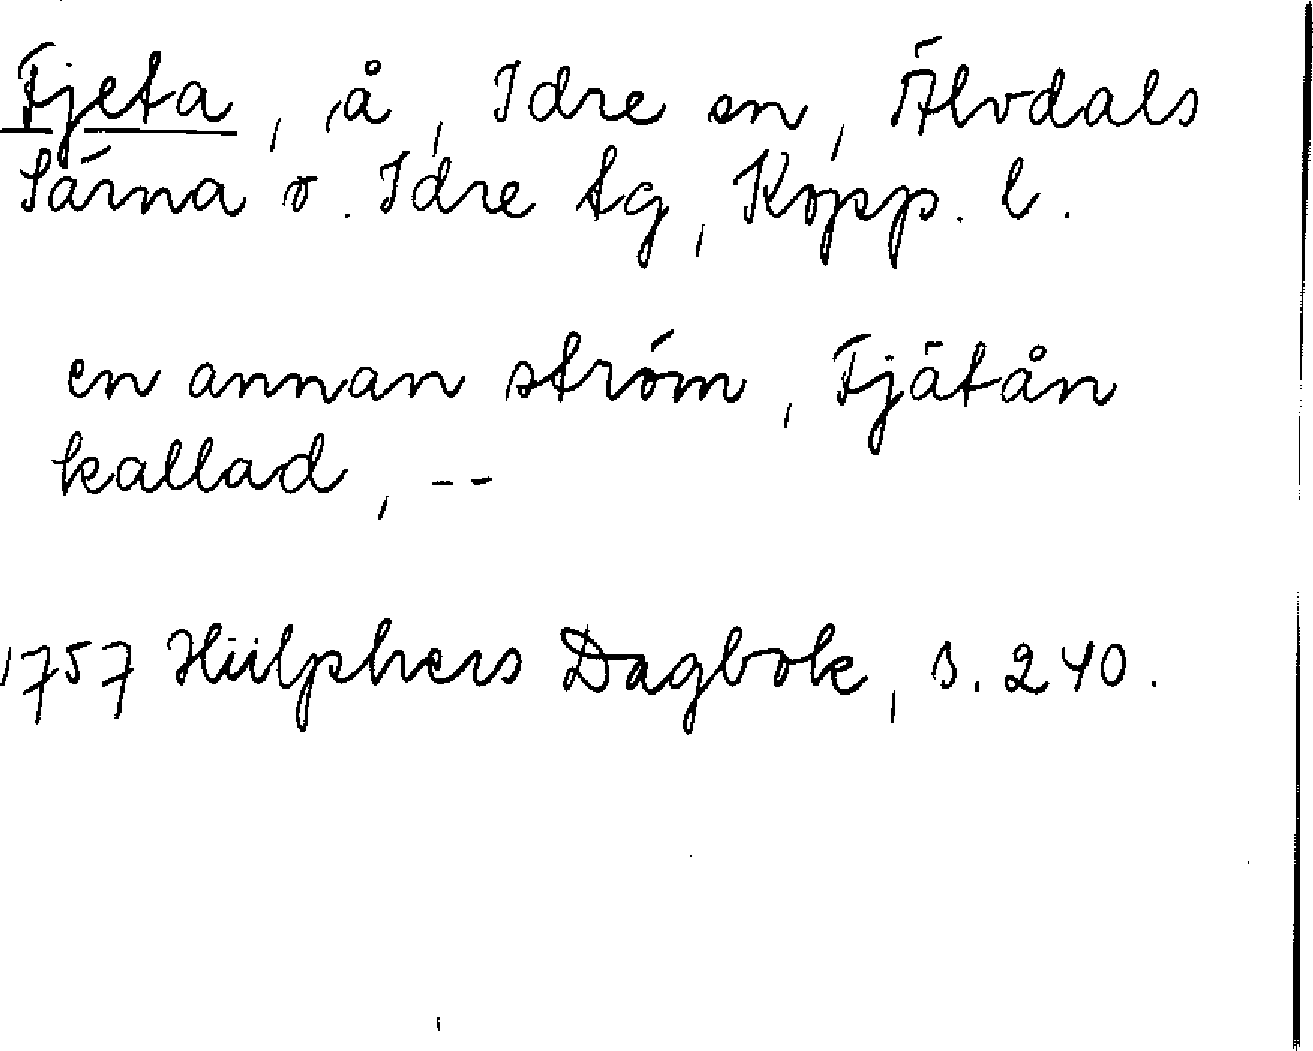 Fjeta, å, Idre sn, Älvdals
Särna o. Idre tg, Kopp. l.
en annan ström, Fjätån
kallad, --
1757 Hülphers Dagbok, s. 240.